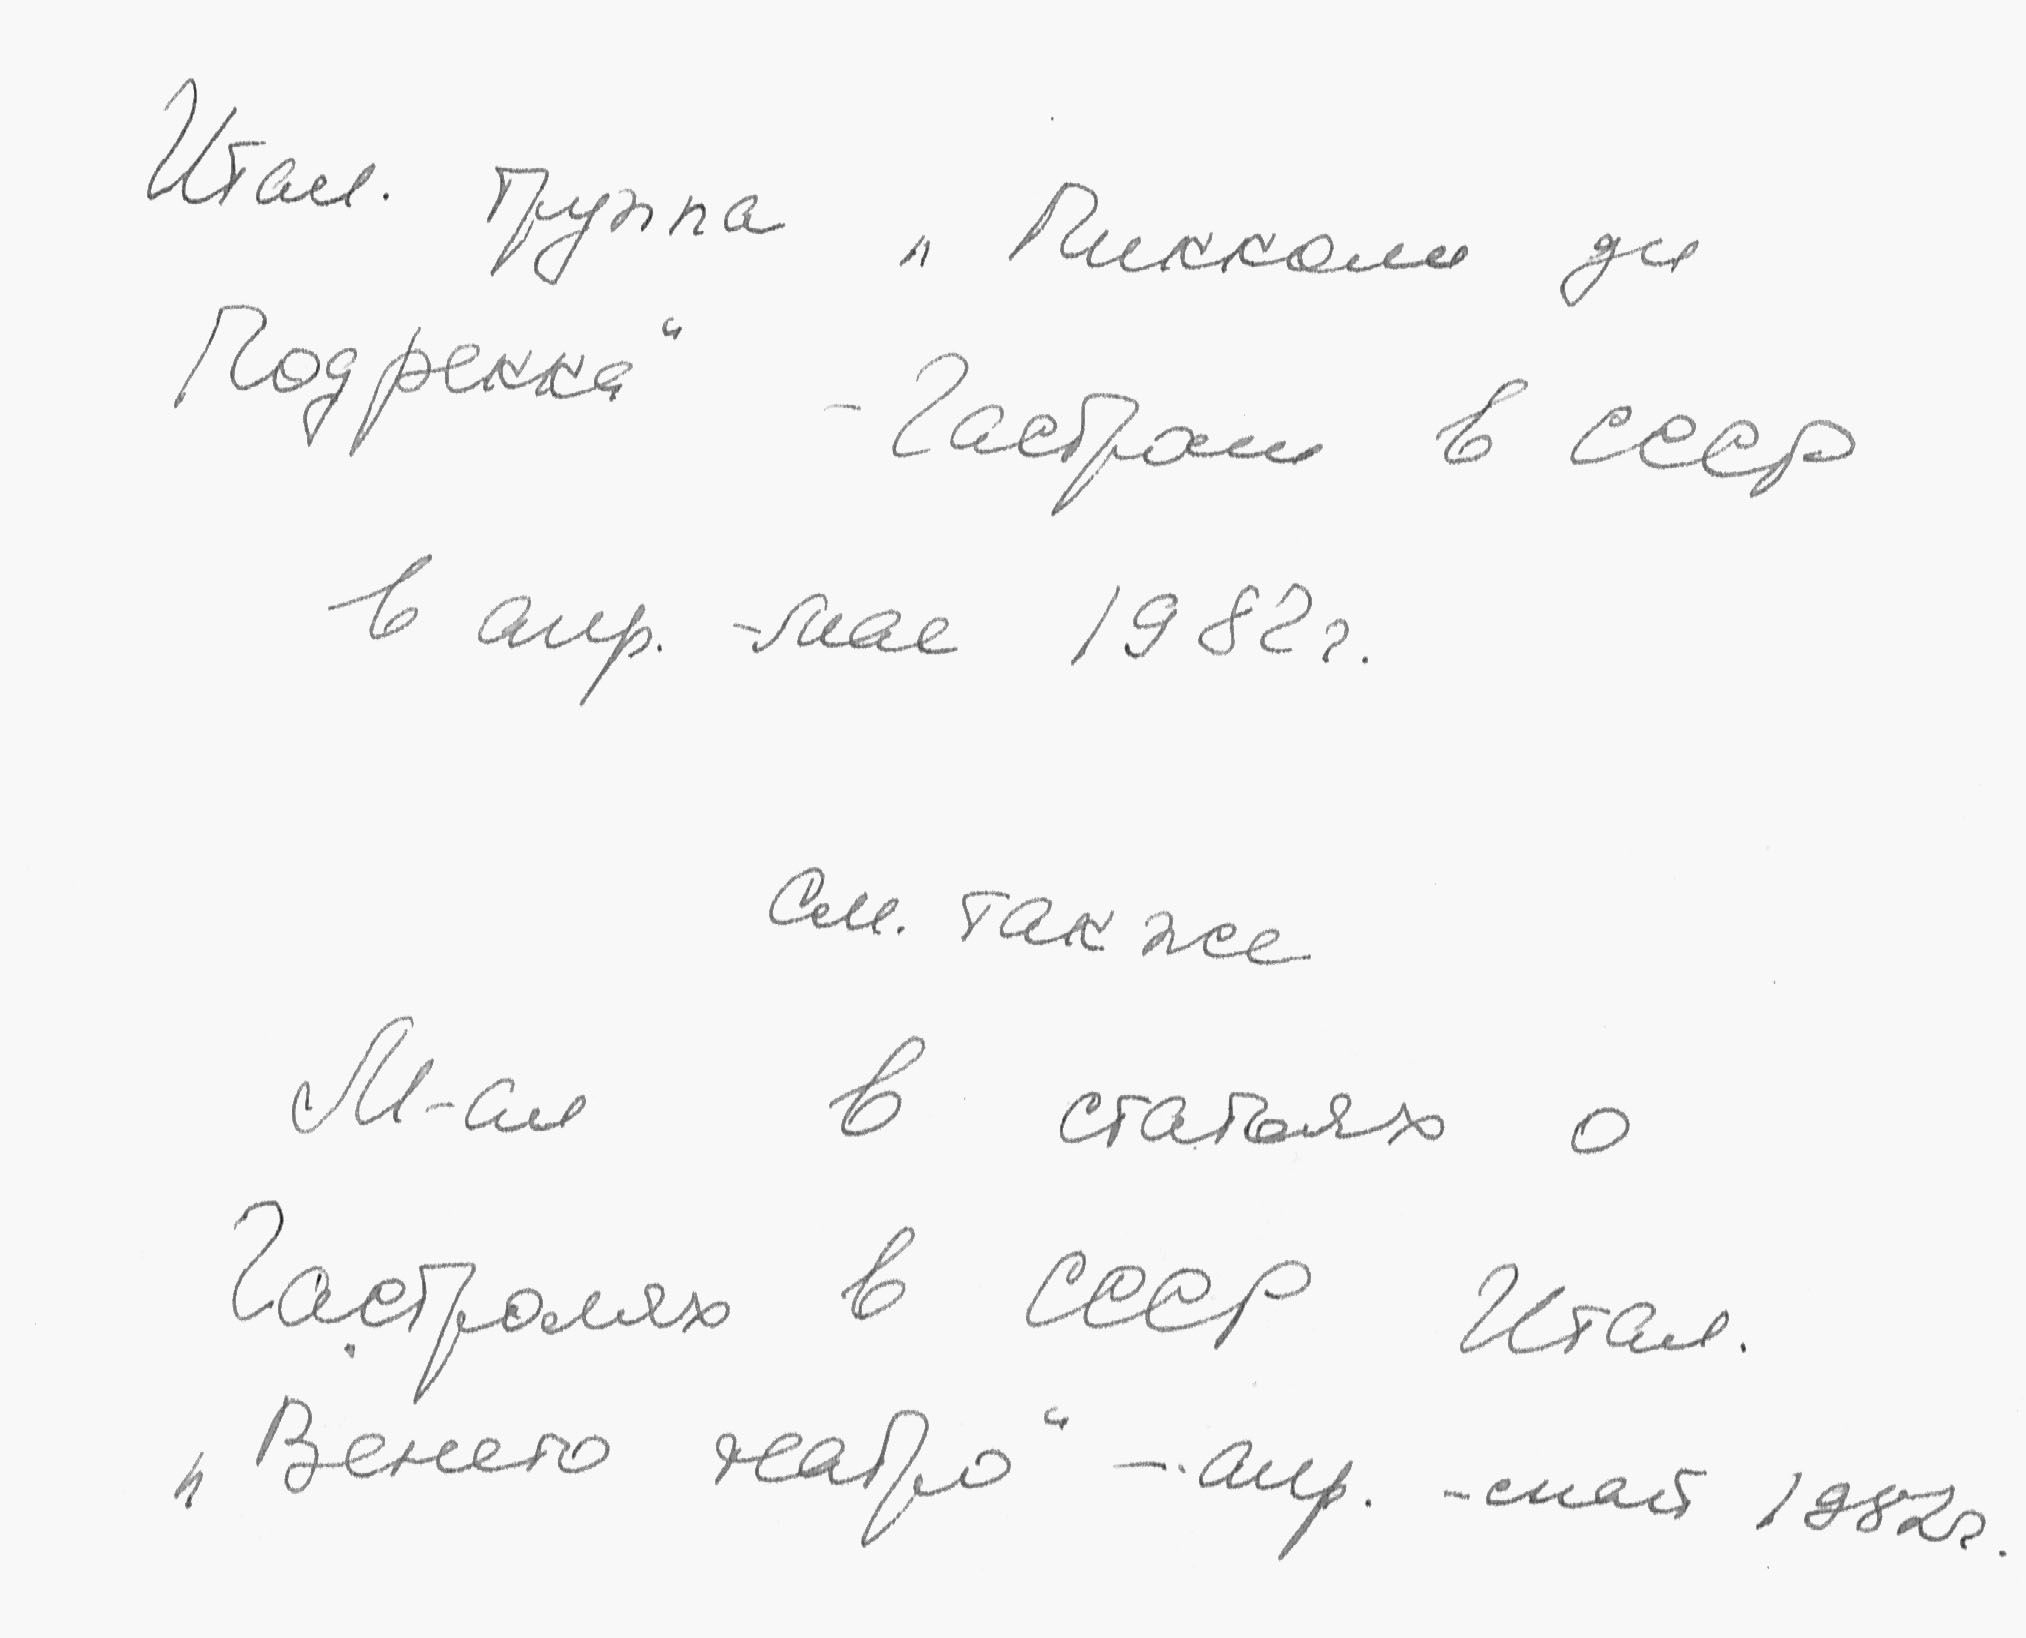 Итал. труппа „Пикколи ди
Подрекка“ - Гастроли в СССР
в апр. - мае 1982 г.
см. также
М-лы в статьях о
Гастролях в СССР Итал.
„Венето театро“ - апр. - май 1982 г.